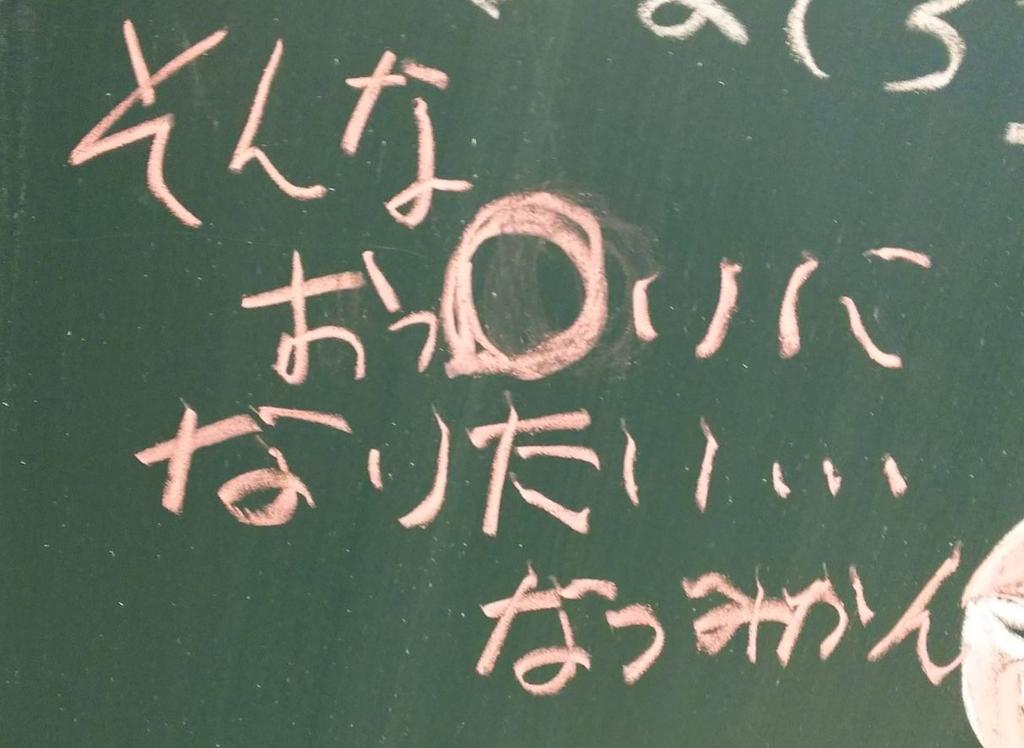 そんな
おっ○いに
なりたい...
なつみかん